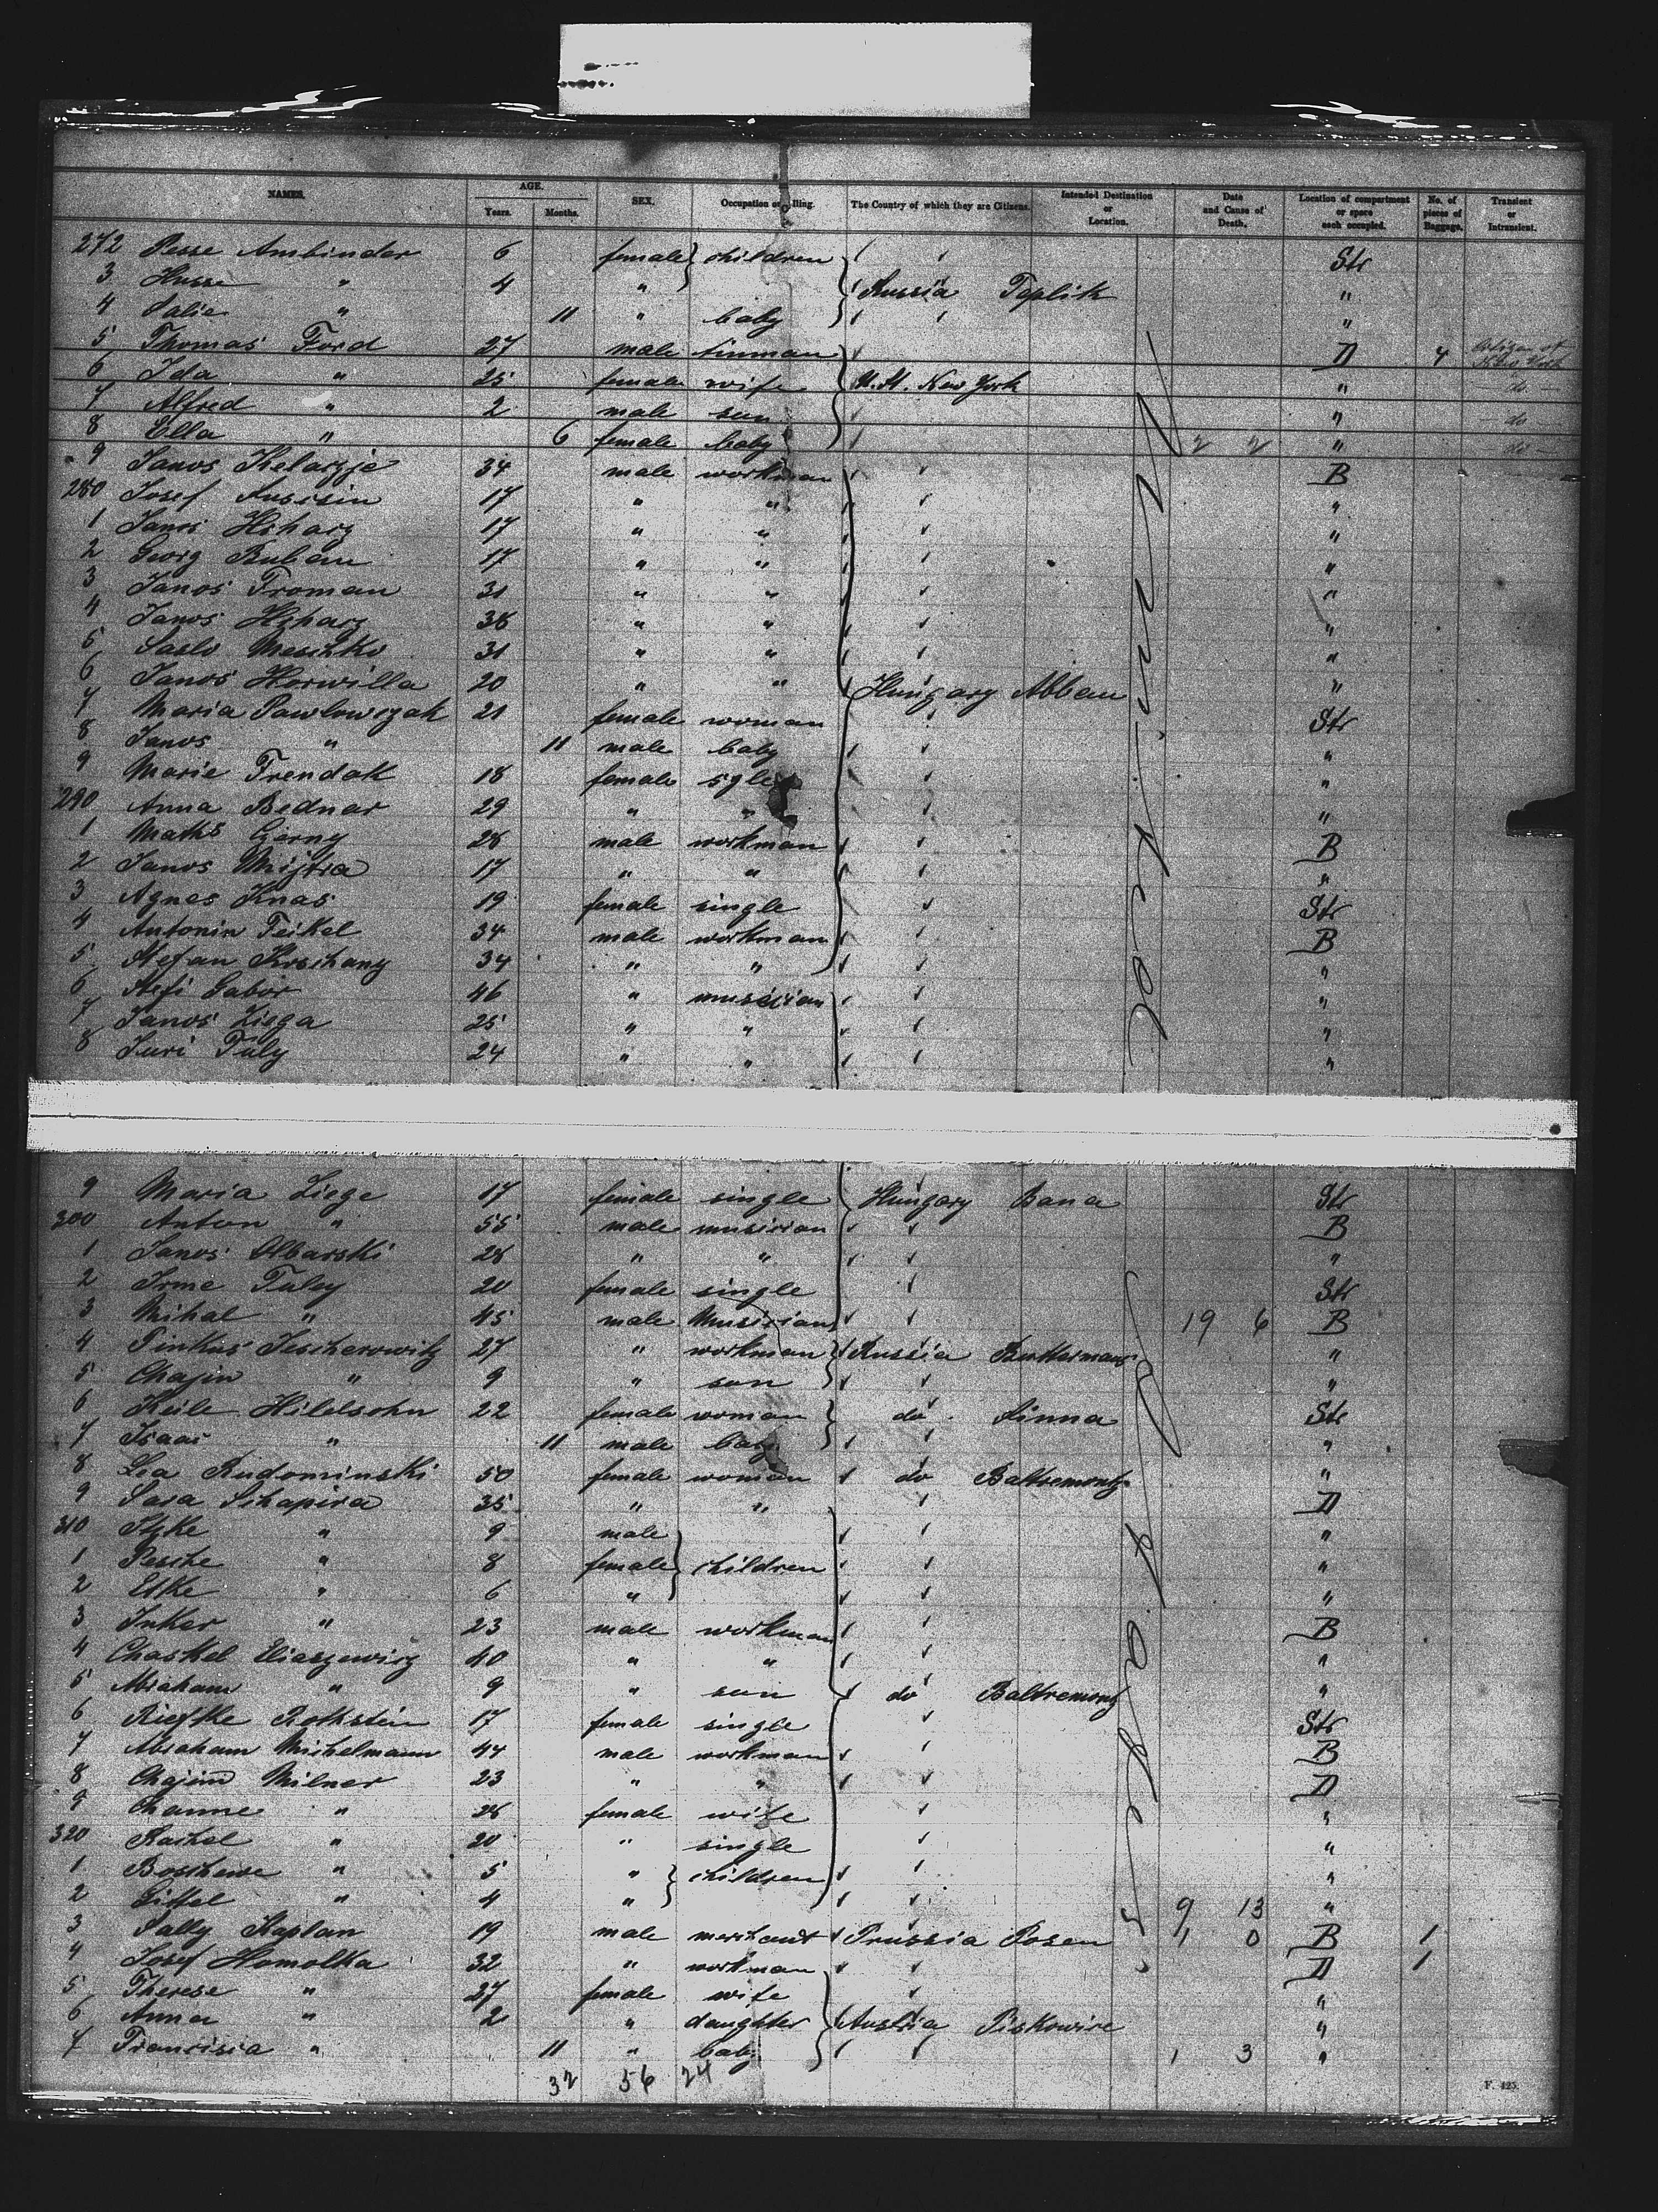 NAMES. AGE. SEX. Occupation or Calling. The Country of which they are Citizens. Intended Destination or Location. Date and Cause of Death. Location of compartment or space each occupied. No. of pieces of Baggage. Transient or Intransient.
Years. Months.
272 Pesse Ambinder 6 female } children Str
3 Husse " 4 " Russia Teplik "
4 Salie " 11 " baby "
5 Thomas Ford 27 male tinman D 4 Citizen of New York
6 Ida " 25 female wife U. St. New York " do
7 Alfred " 2 male son " do
8 Ella " 6 female baby 2 2 " do
9 Janos Kelarzje 34 male workman B
280 Josef Russin 17 " " "
1 Janos Hcharz 17 " " "
2 Georg Buban 17 " " "
3 Janos Froman 31 " " "
4 Janos Hzharz 38 " " "
5 Saslo Meschko 31 " " "
6 Janos Horwilla 20 " " Hungary Abbau "
7 Maria Pawlowszak 21 female woman Str
8 Janos " 11 male baby "
9 Marie Trendak 18 female sgle "
290 Anna Bednar 29 " " "
1 Maths Czerny 28 male workman B
2 Janos Mijtra 17 " " "
3 Agnes Knas 19 female single Str
4 Antonin Feikel 34 male workman B
5 Stefan Krschany 34 " " "
6 Stefi Gabor 46 " musician "
7 Janos Ziega 25 " " "
8 Juri Tuly 24 " " "
9 Maria Ziege 17 female single Hungary Bana Str
300 Anton " 55 male musician B
1 Janos Olbarski 28 " " "
2 Irme Tuley 20 female single Str
3 Mihal " 45 male Musician 19 6 B
4 Pinkus Jescherowitz 27 " workman Russia "
5 Chajin " 9 " son "
6 Keile Hildsohn 22 female woman do Str
7 Isaac " 11 male baby "
8 Lea Rudominski 50 female woman do Baltremontz "
9 Sara Schapira 35 " " D
310 Itzke " 9 male "
1 Pesche " 8 female } children "
2 Etke " 6 " "
3 Inker " 23 male workman B
4 Chaskel Eliaszewicz 40 " " "
5 Abraham " 9 " son do Baltremontz "
6 Riefke Rothstein 17 female single Str
7 Abraham Michelmann 44 male workman B
8 Chajim Milner 23 " " D
9 Channe " 28 female wife "
320 Rachel " 20 " single "
1 Boschewe " 5 " } children "
2 Gittel " 4 " 9 13 "
3 Sally Kaplan 19 male merchant Prussia Posen 1 0 B 1
4 Josef Homolka 32 " workman D 1
5 Therese " 27 female wife "
6 Anna " 2 " daughter Austria Piskowice "
7 Francisca " 11 " baby 1 3 "
32 56 24
F. 425.